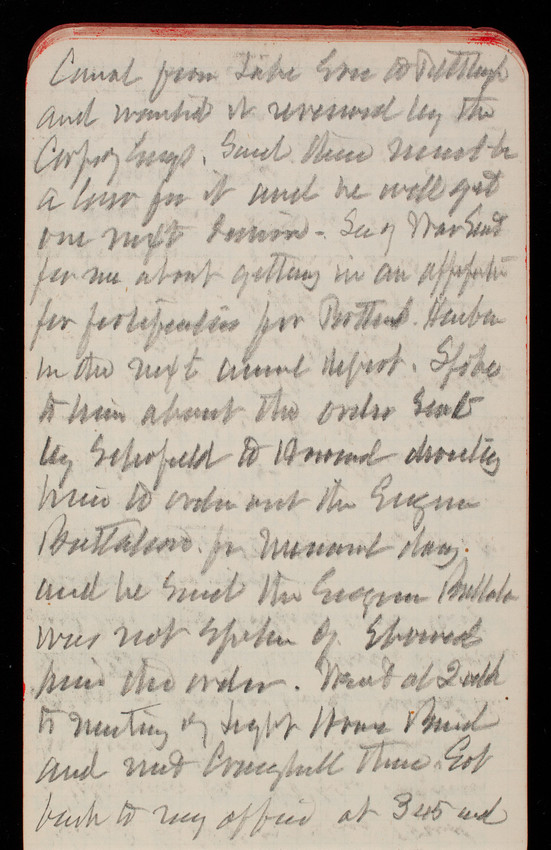 Canal from Lake Erie to Pittsburgh
and wanted it reviewed by the
Corps of Engrs. Said there must be
a law for it and he will get
one next session - Secy War sent
for me about getting in an
for fortification for Portland Harbor
in the next annual report. Spoke
to him about the order sent
by Schofield to Howard directing
him to order out the Engineer
Battalion for day
and he said the Engineer Battalion
was not spoken of Showed
him the order. Went at 2 oclk
to meeting of Light House Board
and met Craighill there. Got
back to my office at 3 45 and